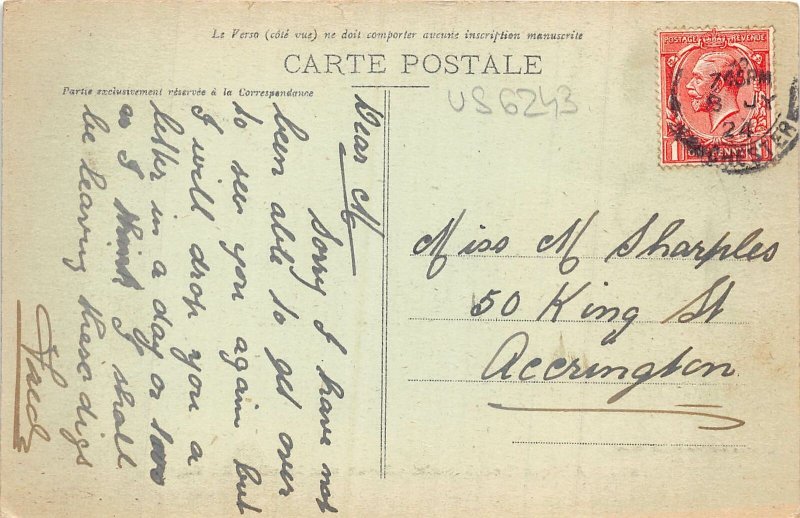 Le Verso (côté vue) ne doit comporter aucune inscription manuscrite
CARTE POSTALE
Partie exclusivement réservée à la Correspondance
US6243
POSTAGE REVENUE
7 45 PM
8 JY
24
CHESTER
Dear M
Sorry I have not
been able to get over
to see you again but
I will drop you a
letter in a day or
as I think I shall
be leaving these digs
Miss M Sharples
50 King St
Accrington